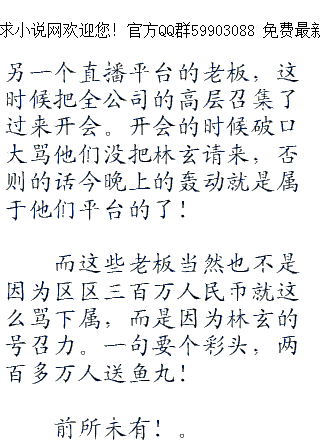 求小说网欢迎您！官方QQ群59903088 免费最新
另一个直播平台的老板，这
时候把全公司的高层召集了
过来开会。开会的时候破口
大骂他们没把林玄请来，否
则的话今晚上的轰动就是属
于他们平台的了！
而这些老板当然也不是
因为区区三百万人民币就这
么骂下属，而是因为林玄的
号召力。一句要个彩头，两
百多万人送鱼丸！
前所未有！。